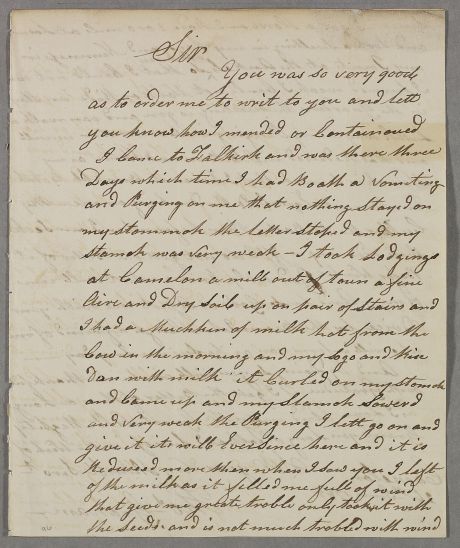 Sir
You was so very good
as to order me to writ to you and lett
you know how I mended or Containoued
I Came to Falkirk and was there three
Days which time I had Boath a Vomiting
and Purging on me that nothing Stayed on
my stommok the letter Stoped and my
Stamok was very weak – I took Lodgings
at Camelon a mile out of town a fine
Aire and Dry Soil up on pair of Stairs and
I had a Muchken of milk hot from the
Cow in the morning and my Sogo and Rise
Dan with milk it Curled on my Stomok
and Came up and my Stamok Sowerd
and very weak the Purging I lett go on and
give it its will Ever Since here and it is
Reduced more then when I saw you I left
of the milk as it filled me full of wind
that give me greate troble only took it with
the Seeds and is not much trobled with wind